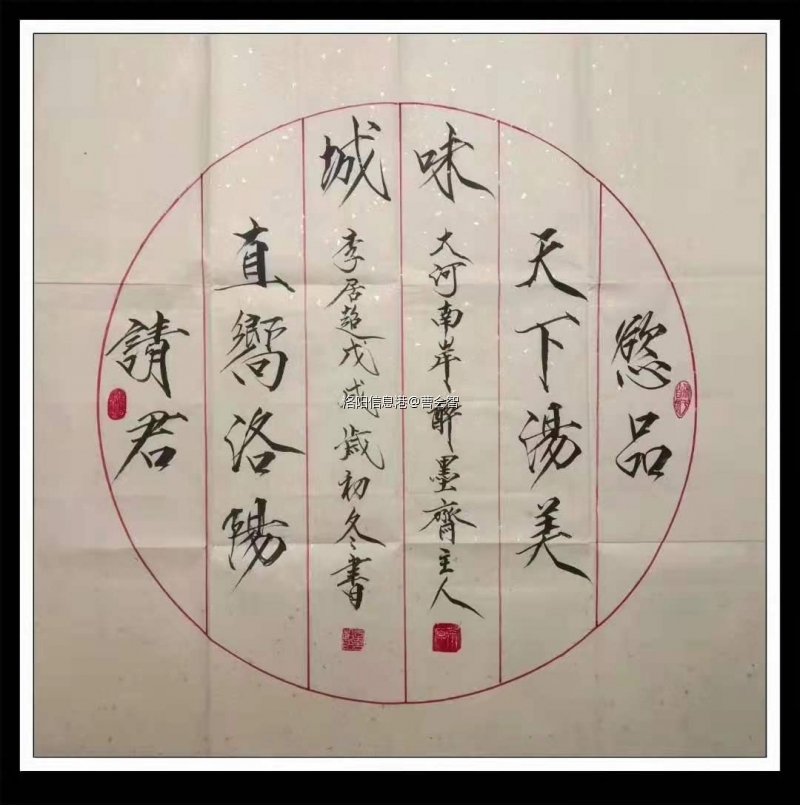 慾品
天下湯美
味
大河南岸醉墨齋主人
城
李居超戊戌歲初冬書
直嚮洛陽
請君
洛阳信息港@曹会智